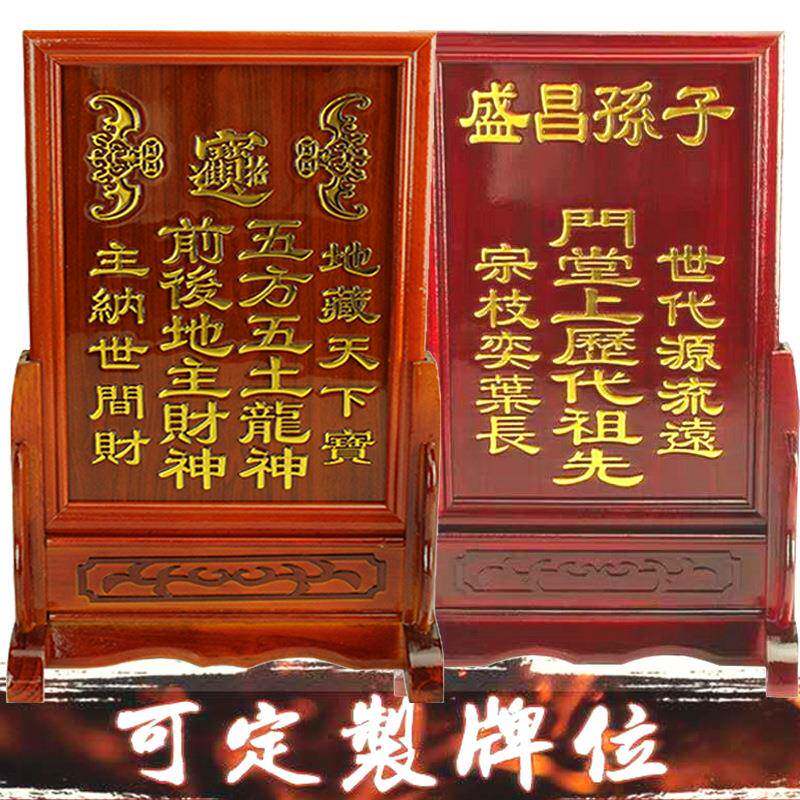 招財進寶
地藏天下寶
五方五土龍神
前後地主財神
主納世間財
子孫昌盛
世代源流遠
門堂上歷代祖先
宗枝奕葉長
可定製牌位